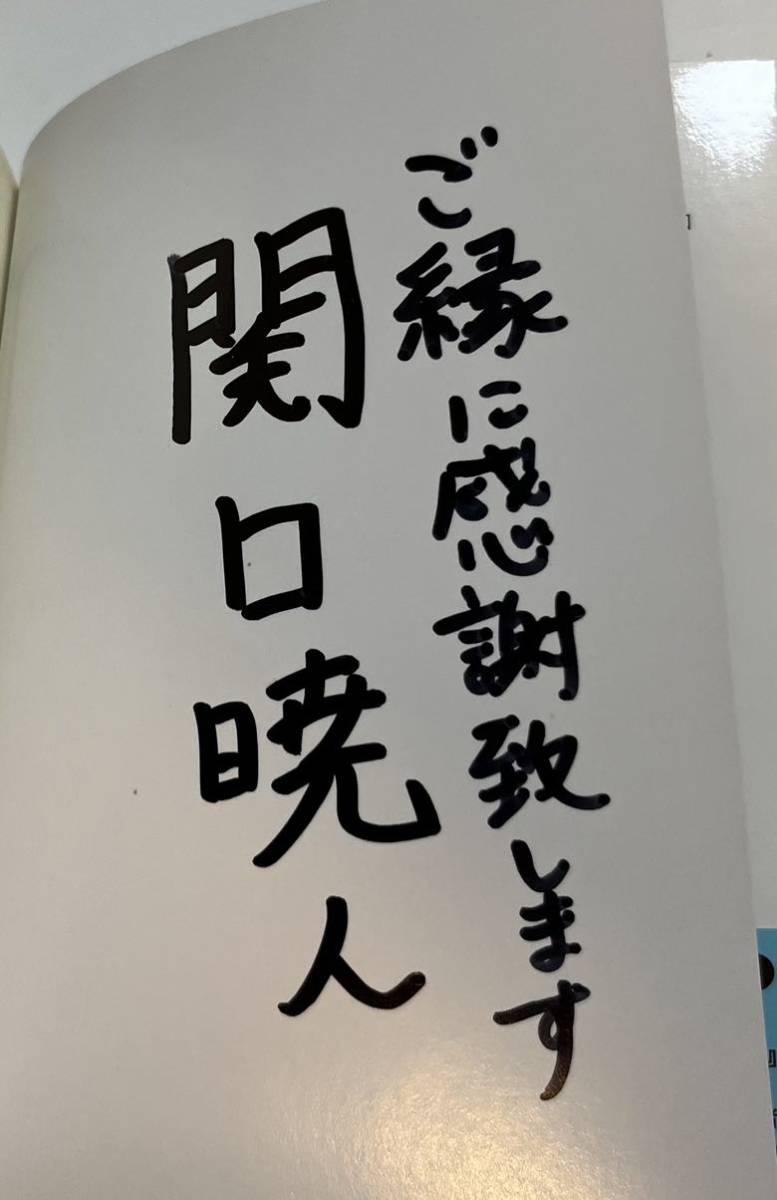 ご縁に感謝致します
関口暁人